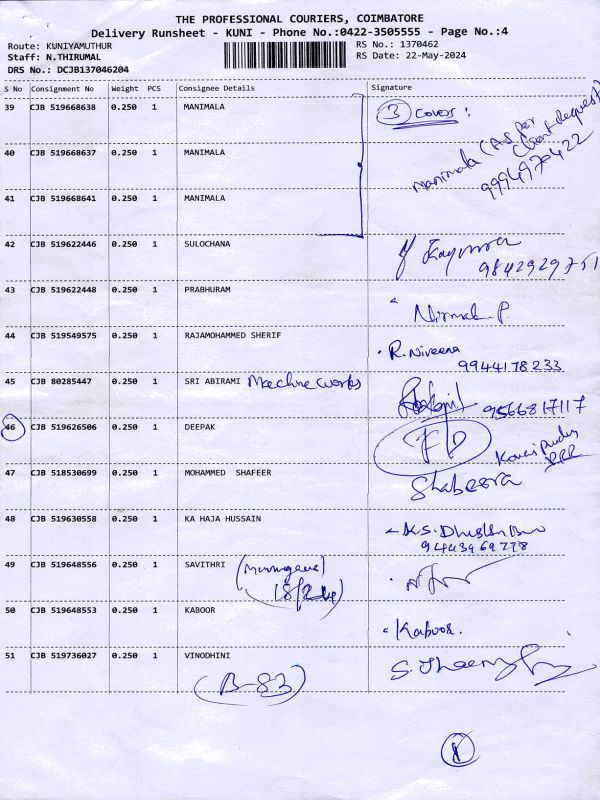 THE PROFESSIONAL COURIERS, COIMBATORE
Delivery Runsheet - KUNI - Phone No.:0422-3505555 - Page No.:4
Route: KUNIYAMUTHUR RS No.: 1370462
Staff: N.THIRUMAL RS Date: 22-May-2024
DRS No.: DCJB137046204
S No Consignment No Weight PCS Consignee Details Signature
39 CJB 519668638 0.250 1 MANIMALA 3 Covers:
Manimala (As per
Client request)
9994970422
40 CJB 519668637 0.250 1 MANIMALA
41 CJB 519668641 0.250 1 MANIMALA
42 CJB 519622446 0.250 1 SULOCHANA
9842929751
43 CJB 519622448 0.250 1 PRABHURAM Nirmal. P.
44 CJB 519549575 0.250 1 RAJAMOHAMMED SHERIF R. Niveena
9944178233
45 CJB 80285447 0.250 1 SRI ABIRAMI Machine works
9566817117
46 CJB 519626506 0.250 1 DEEPAK FD
47 CJB 518530699 0.250 1 MOHAMMED SHAFEER Shabeera
48 CJB 519630558 0.250 1 KA HAJA HUSSAIN K.S.
9443969778
49 CJB 519648556 0.250 1 SAVITHRI
50 CJB 519648553 0.250 1 KABOOR Kaboor.
51 CJB 519736027 0.250 1 VINODHINI
(B-83)